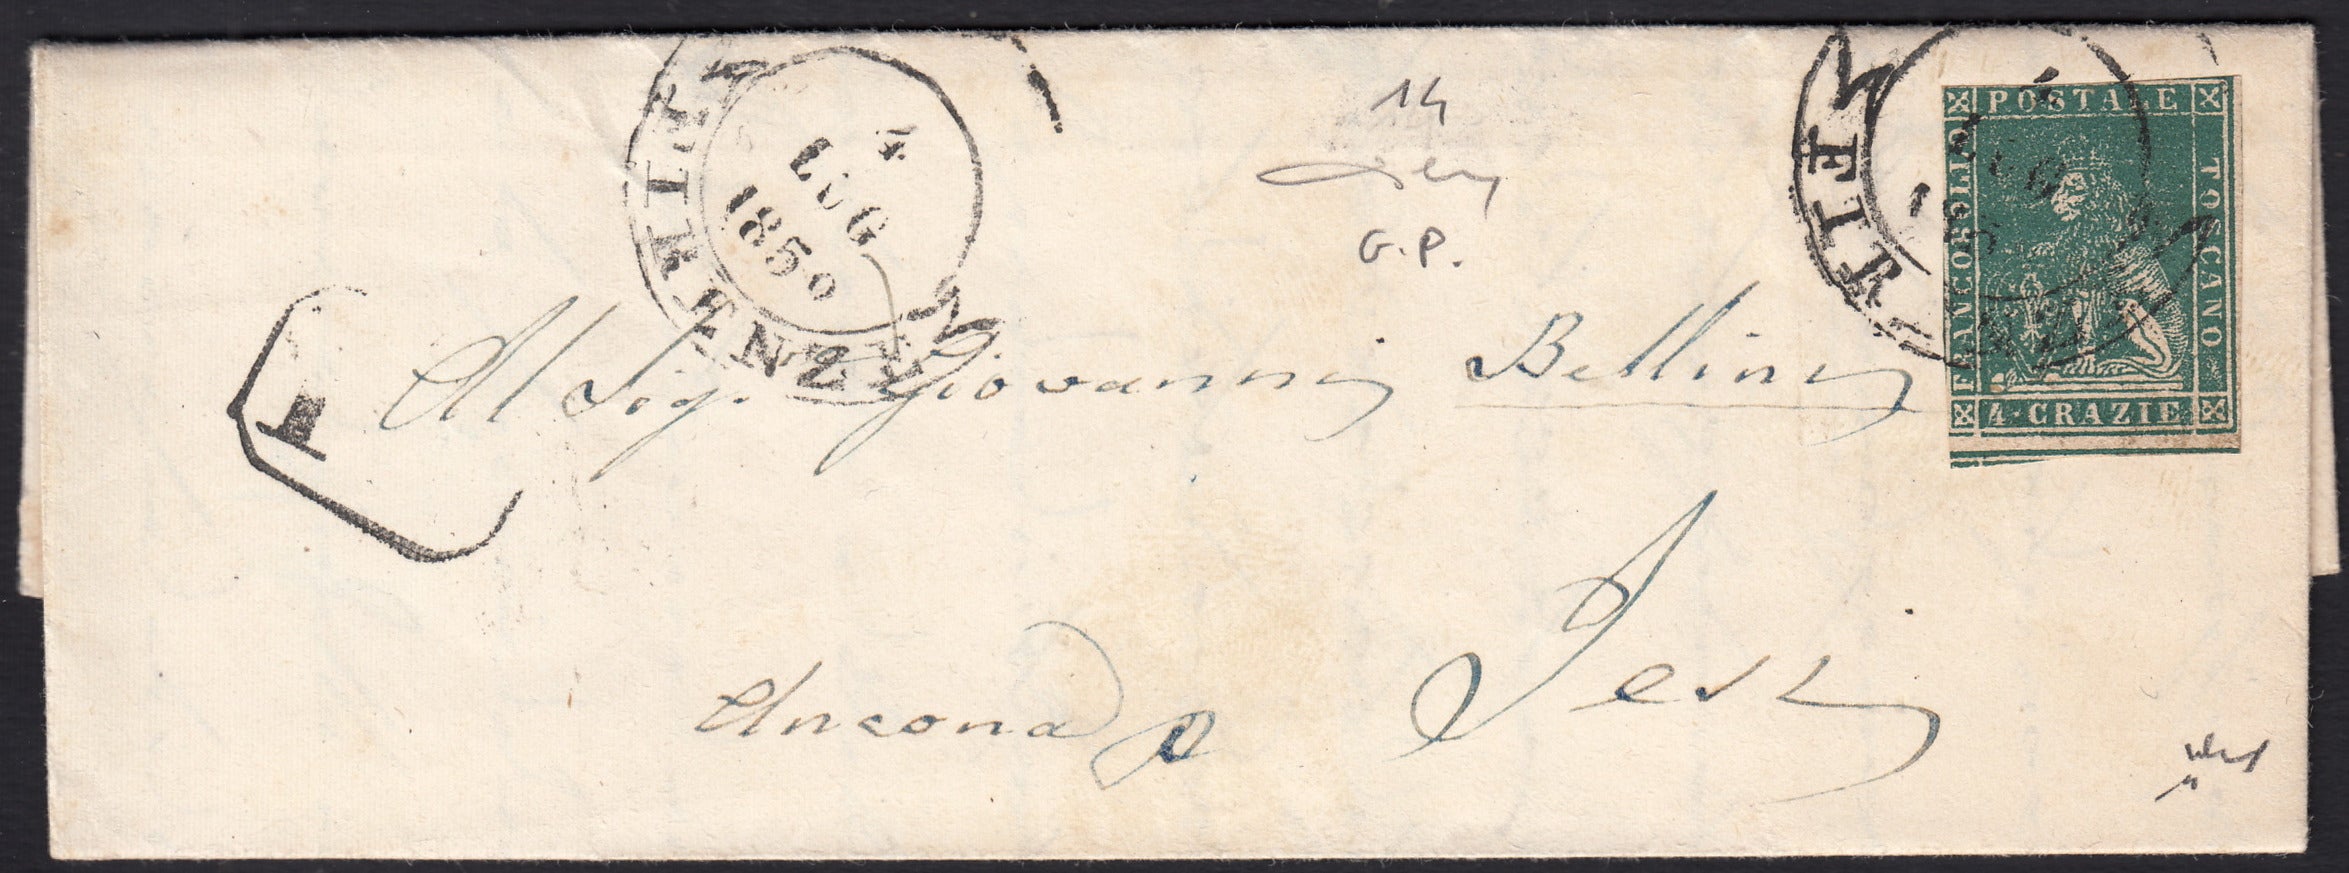 FIRENZE
4
LUG
1850
14
G.P.
FIR
4
LUG
FRANCOBOLLO POSTALE TOSCANO
4·CRAZIE
T
Al Sig. Giovanni Bellini
Ancona p Jesi